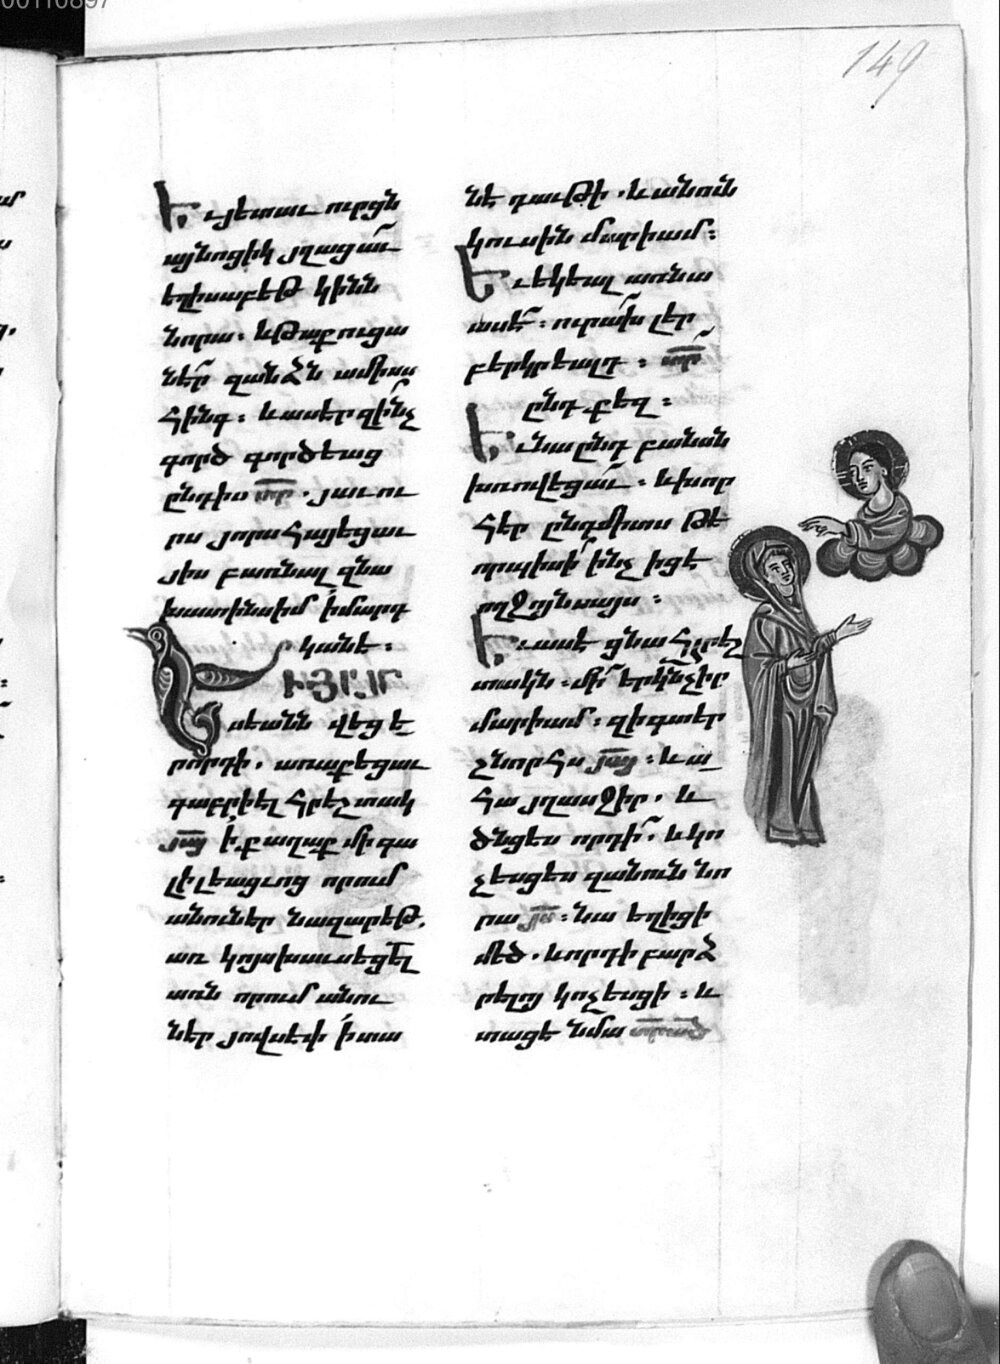 00110897
149
Եւ յետ աւուրցն
այնոցիկ յղացաւ
եղիսաբեթ կինն
նորա. և թաքուցա
նէր զանձն ամիսս
հինգ. և ասէր զինչ
գործ գործեաց
ընդիս տր. յաւու
րս յորս հայեցաւ
յիս բառնալ զնա
խատինս իմ ի մարդ
կանէ.
ԻՅԱՄ
սեանն վեցե
րորդի. առաքեցաւ
գաբրիէլ հրեշտակ
յայ ի քաղաք մի գա
լիլեացւոց որում
անուն էր նազարեթ.
առ կոյս խաւսեցել
առն որում անու
ն էր յովսէփ ի տա
նէ դաւթի. և անուն
կուսին մարիամ.
Եւ եկեալ առ նա
ասէ. ուրախ լեր
բերկրեալդ. տր
ընդ քեզ.
Եւ նա ընդ բանսն
խռովեցաւ. և խոր
հէր ընդ միտս թէ
որպիսի ինչ իցէ
ողջոյնս այս.
Եւ ասէ ցնա հրեշ
տակն. մի երկնչիր
մարիամ. զի գտեր
շնորհս յայ. և ա
հա յղասջիր. և
ծնցես որդի. և կո
չեսցես զանուն նո
րա յս. նա եղիցի
մեծ. և որդի բարձ
րելոյ կոչեսցի. և
տացէ նմա տր ած